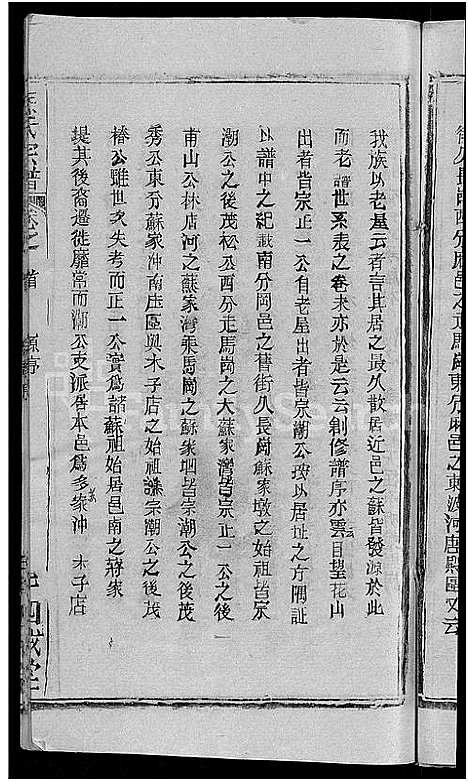 衡公長岡西分麻邑之走馬崗東分麻邑之東源河唐縣區又云
我族以老屋云者言其居之最久散居近邑之蘇皆發源於此
而老譜世系表之卷末亦於是云云創修譜序亦雲自望花山
出者皆宗正一公自老屋出者皆宗潮公按以居址之方隅証
以譜中之紀載南分岡邑之晉街久長崗蘇家墩之始祖皆宗
潮公之後茂松公西分走馬崗之大蘇家灣皆宗正一公之後
甫山公林店河之蘇家灣乘馬崗之蘇家垇皆宗潮公之後茂
秀公東分蘇家冲南庄區與木子店之始祖謙宗潮公之後茂
椿公雖世次失考而正一公實為諸蘇祖始居邑南之蔣家
堤其後裔遷徙靡常而潮公支派居本邑為多蘇家冲 木子店
氏宗譜 卷之首